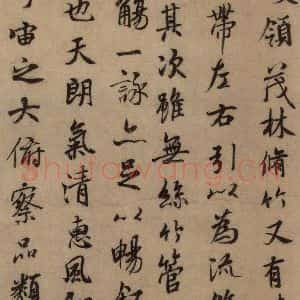 領茂林脩竹又有
帶左右引以為流
其次雖無絲竹管
觴一詠亦足以暢敘
也天朗氣清惠風
宙之大俯察品類
Shufawang.cn